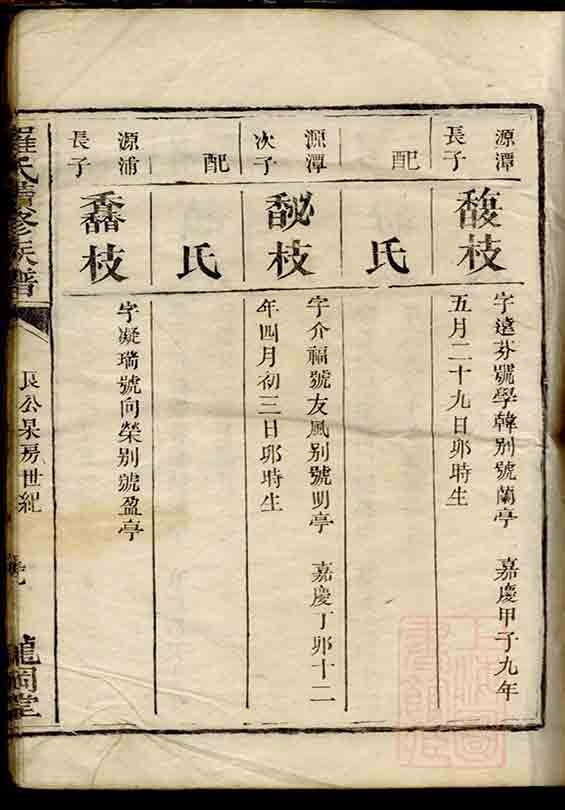 源潭
長子
馥枝
字遠芬號學韓别號蘭亭 嘉慶甲子九年
五月二十九日卯時生
配
氏
源潭
次子
馝枝
字介福號友風别號明亭 嘉慶丁卯十二
年四月初三日卯時生
配
氏
源浦
長子
馫枝
字凝瑞號向榮别號盈亭
羅氏續修族譜
良公杲房世紀
龍岡堂